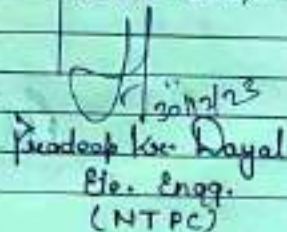 30/12/23
Pradeep Kr. Dayal
Ele. Engg.
(NTPC)